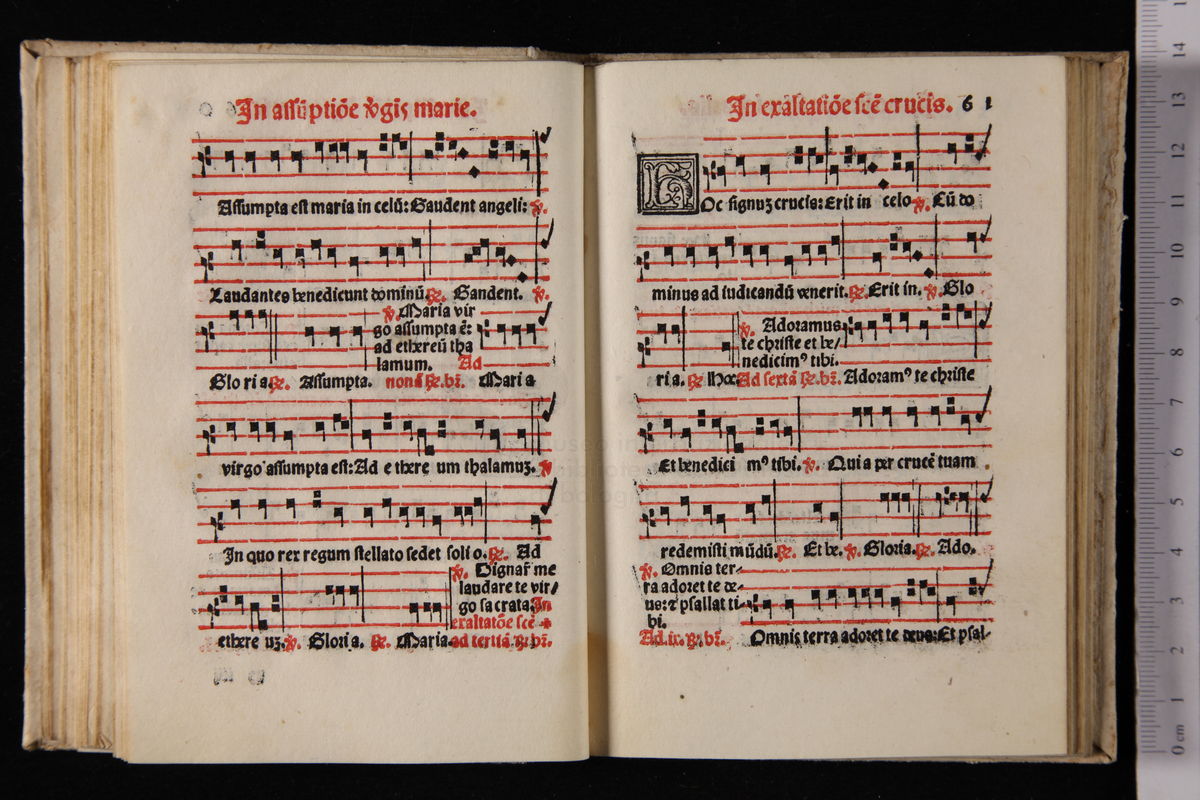 In assūptiōe ꝟgīs marie.
Assumpta est maria in celū: Gaudent angeli: ℣.
Laudantes benedicunt dominū. ℞. Gaudent. ℣.
℣. Maria vir
go assumpta ē:
ad ethereū tha
lamum. Ad
Glo ri a. ℞. Assumpta. nonā ℞. bꝛ̄. Mari a
virgo assumpta est: Ad e there um thalamuꝫ. ℣
In quo rex regum stellato sedet soli o. ℞. Ad
℣. Dignar̄ me
laudare te vir/
go sacrata. In
exaltatōe scē +
ethere uꝫ. ℣. Glori a. ℞. Maria. ad tertiā. ℞. bꝛ̄.
In exaltatiōe scē crucis. 61
HOc signuꝫ crucis: Erit in celo ℣. Cū do
minus ad iudicandū venerit. ℞. Erit in. ℣. Glo
℣. Adoramus
te christe et be/
nedicimꝰ tibi.
ri a. ℞ Hoc Ad sextā ℞. bꝛ̄. Adoramꝰ te christe
Et benedici mꝰ tibi. ℣. Qui a per crucē tuam
redemisti mūdū. ℞. Et be. ℣. Gloria. ℞. Ado.
℣. Omnis ter-
ra adoret te de-
us: ⁊ psallat ti-
bi.
Ad .ix. ℞. bꝛ̄. Omnis terra adoret te deus: Et psal-
14
13
12
11
10
9
8
7
6
5
4
3
2
1
0 cm